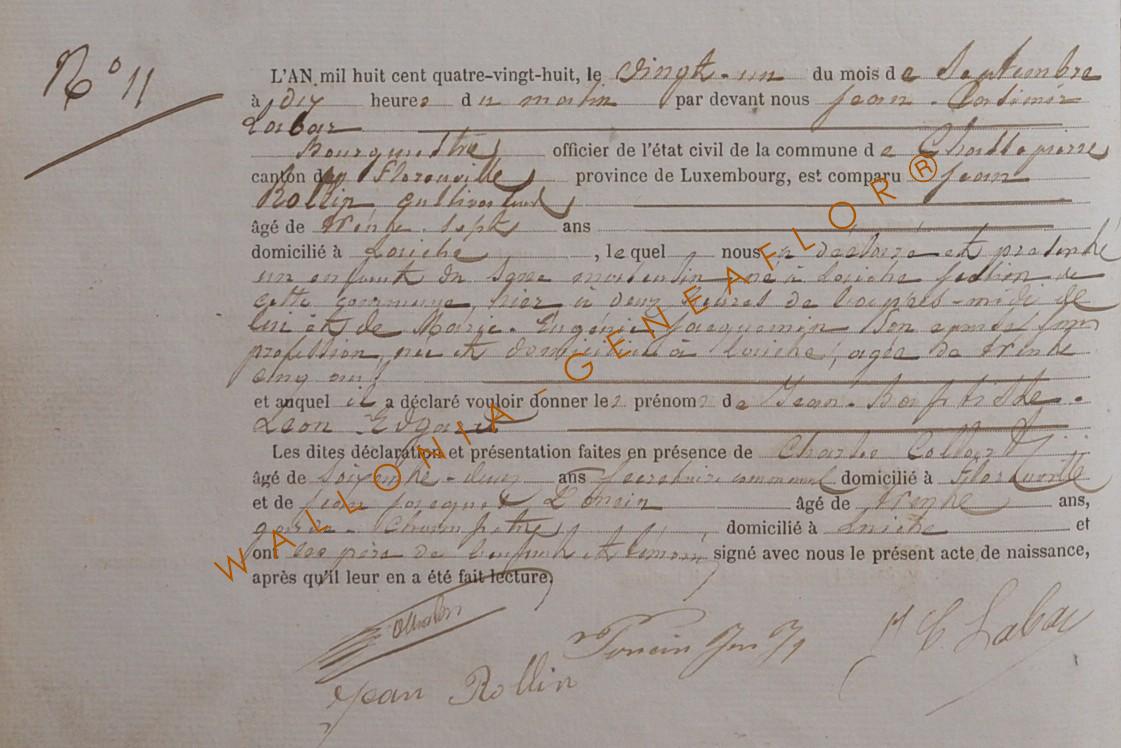 N° 11
L'AN mil huit cent quatre-vingt-huit, le vingt-un du mois de Septembre
à dix heures du matin par devant nous Jean-Casimir
Labar
Bourgmestre officier de l'état civil de la commune de Chassepierre
canton de Florenville province de Luxembourg, est comparu Jean
Rollin cultivateur
âgé de trente-sept ans
domicilié à Laiche, lequel nous a déclaré et présenté
un enfant du sexe masculin né à Laiche section de
cette commune hier à deux heures de l'après-midi de
lui et de Marie-Eugénie Jacquemin son épouse sans
profession, née et domiciliée à Laiche, agée de trente
cinq ans
et auquel il a déclaré vouloir donner les prénoms de Jean-Baptiste-
Léon Edgard
Les dites déclaration et présentation faites en présence de Charles Collard
âgé de soixante-deux ans secrétaire communal domicilié à Florenville
et de Jean âgé de trente ans,
garde-Champêtre domicilié à Laiche et
ont les père de l'enfant et témoins signé avec nous le présent acte de naissance,
après qu'il leur en a été fait lecture,
J C Labar
Jean Rollin
WALLONIA-GENEAFLOR®